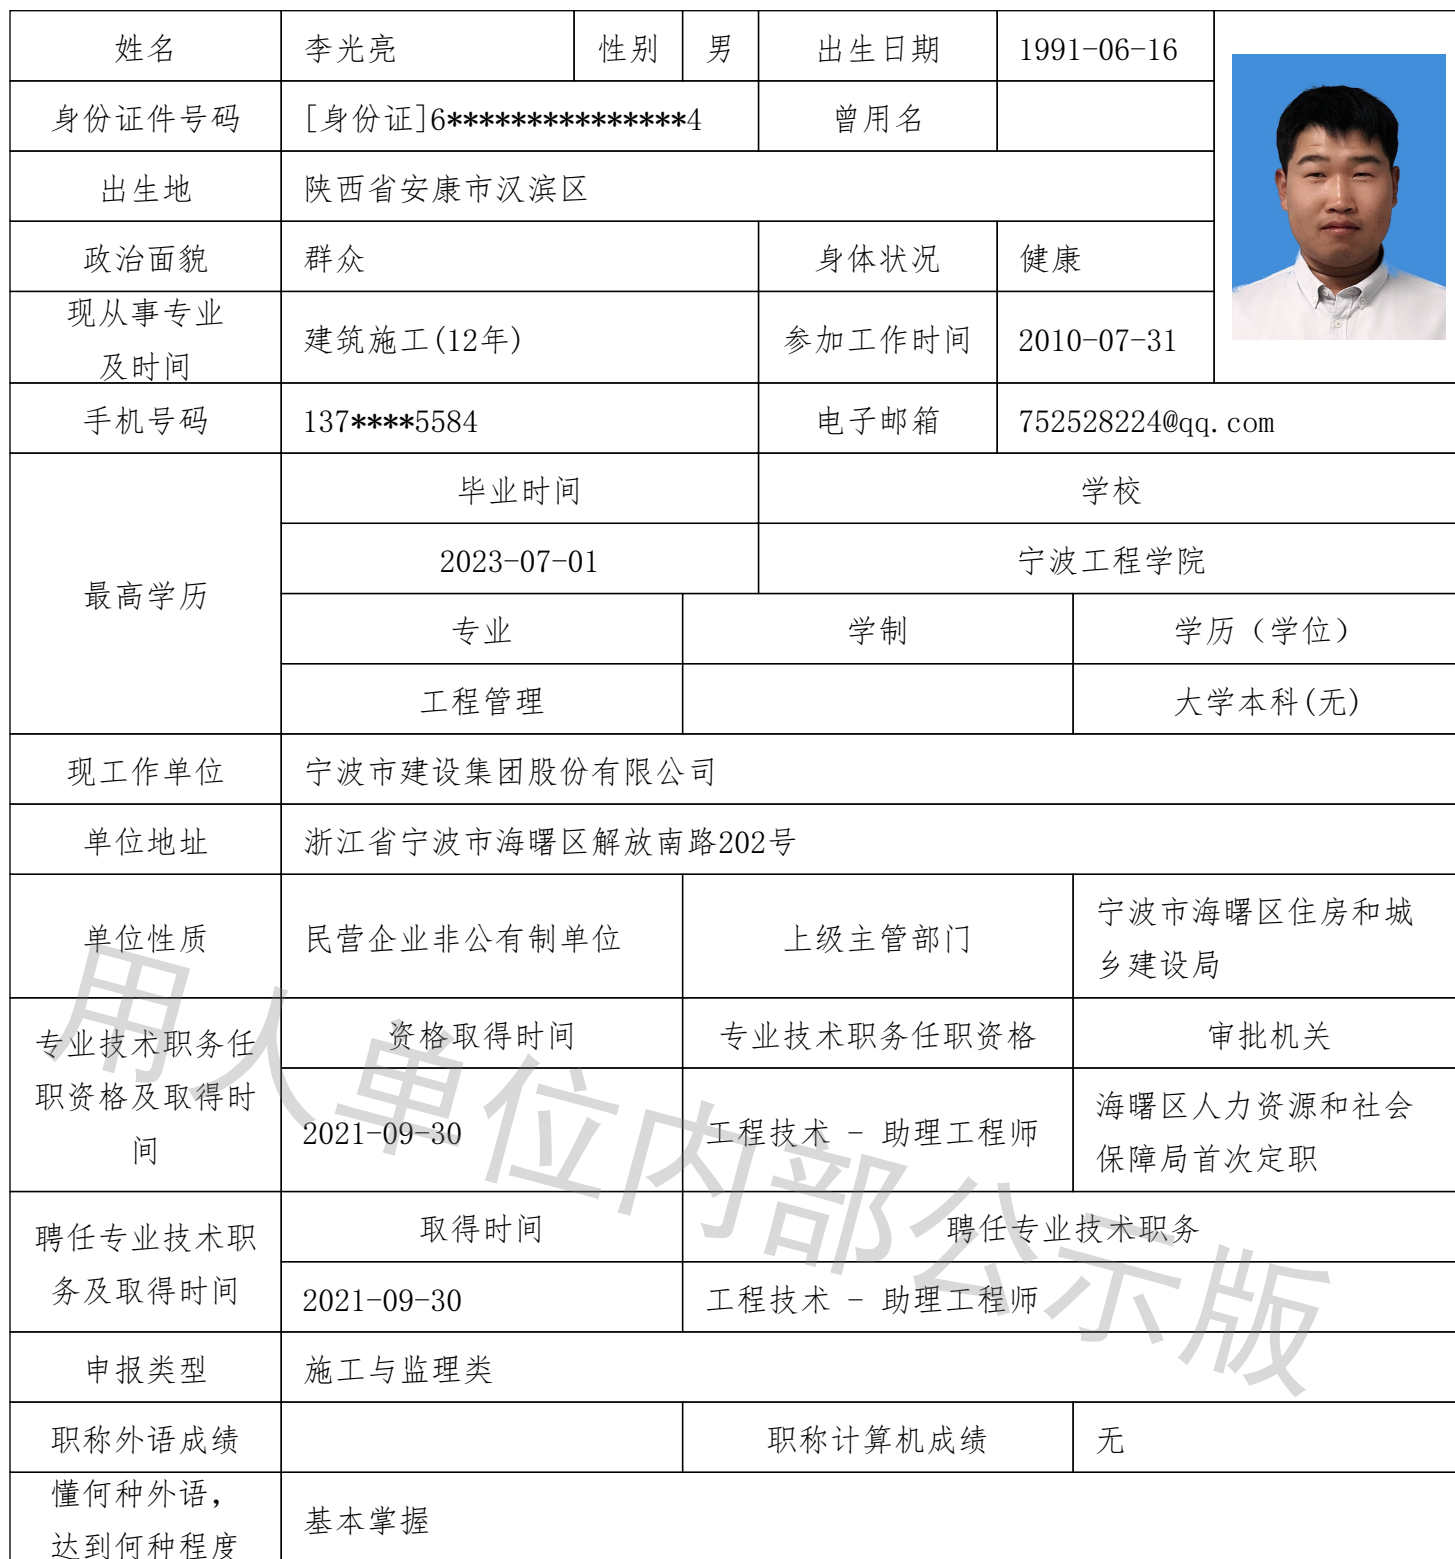 姓名 李光亮 性别 男 出生日期 1991-06-16
身份证件号码 [身份证]6***************4 曾用名
出生地 陕西省安康市汉滨区
政治面貌 群众 身体状况 健康
现从事专业
及时间
建筑施工(12年) 参加工作时间 2010-07-31
手机号码 137****5584 电子邮箱 752528224@qq.com
最高学历
毕业时间 学校
2023-07-01 宁波工程学院
专业 学制 学历（学位）
工程管理 大学本科(无)
现工作单位 宁波市建设集团股份有限公司
单位地址 浙江省宁波市海曙区解放南路202号
单位性质 民营企业非公有制单位 上级主管部门
宁波市海曙区住房和城
乡建设局
专业技术职务任
职资格及取得时
间
资格取得时间 专业技术职务任职资格 审批机关
2021-09-30 工程技术 - 助理工程师
海曙区人力资源和社会
保障局首次定职
聘任专业技术职
务及取得时间
取得时间 聘任专业技术职务
2021-09-30 工程技术 - 助理工程师
申报类型 施工与监理类
职称外语成绩 职称计算机成绩 无
懂何种外语，
达到何种程度
基本掌握
用人单位内部公示版